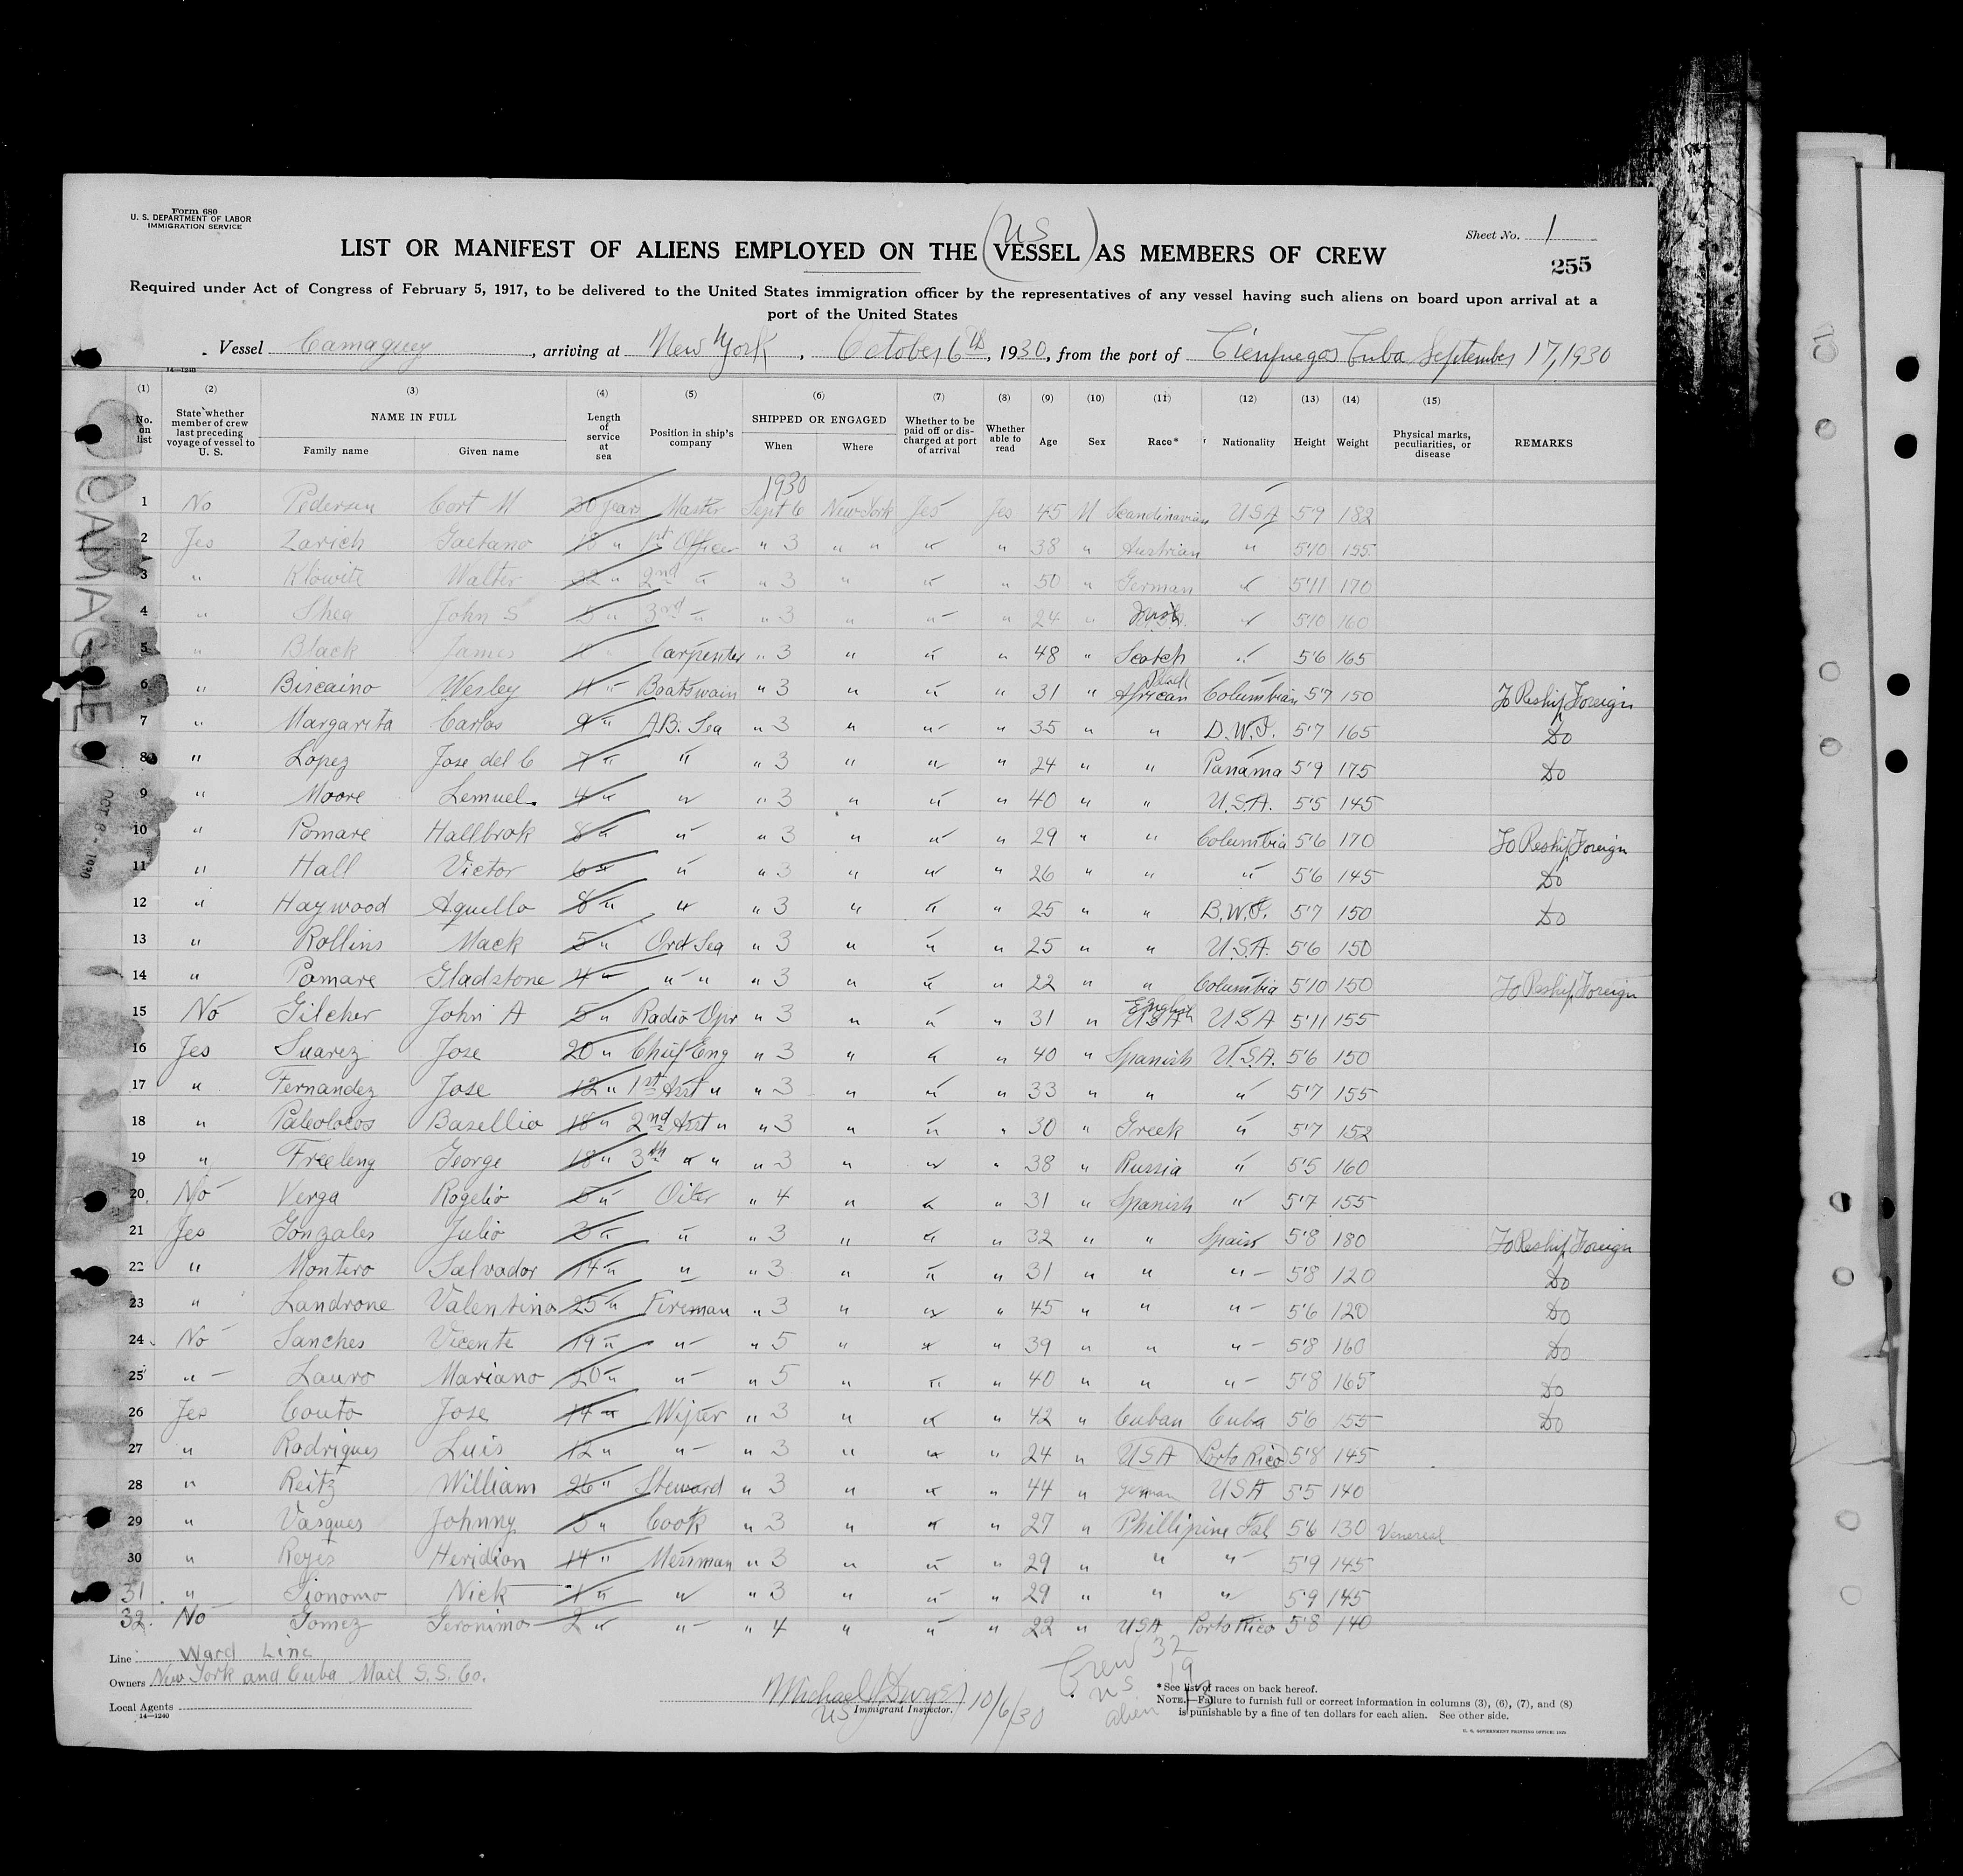 Form 680
U. S. DEPARTMENT OF LABOR
IMMIGRATION SERVICE
Sheet No. 1
255
US
LIST OR MANIFEST OF ALIENS EMPLOYED ON THE (VESSEL) AS MEMBERS OF CREW
Required under Act of Congress of February 5, 1917, to be delivered to the United States immigration officer by the representatives of any vessel having such aliens on board upon arrival at a
port of the United States
Vessel Camaguey, arriving at New York, October 6th, 1930, from the port of Cienfuegos Cuba September 17, 1930
14—1240
(1) (2) (3) (4) (5) (6) (7) (8) (9) (10) (11) (12) (13) (14) (15)
No. on list State whether member of crew last preceding voyage of vessel to U. S. NAME IN FULL Family name Given name Length of service at sea Position in ship's company SHIPPED OR ENGAGED When Where Whether to be paid off or discharged at port of arrival Whether able to read Age Sex Race* Nationality Height Weight Physical marks, peculiarities, or disease REMARKS
1930
1 No Pedersen Cort M 30 years Master Sept 6 New York Yes Yes 45 M Scandinavian USA 5'9 182
2 Yes Zarich Gaetano 18 " 1st Officer " 3 " " " " 38 " Austrian " 5'10 155
3 " Klowitz Walter 32 " 2nd " " 3 " " " 50 " German " 5'11 170
4 " Shea John S 5 " 3rd " " 3 " " " 24 " Irish " 5'10 160
5 " Black James " Carpenter " 3 " " " 48 " Scotch " 5'6 165
6 " Biscaino Wesley 4 " Boatswain " 3 " " " 31 " African Black Columbian 5'7 150 To Reship Foreign
7 " Margarita Carlos 9 " A.B. Sea " 3 " " " 35 " " D.W.I. 5'7 165 Do
8 " Lopez Jose del C 7 " " " 3 " " " 24 " " Panama 5'9 175 Do
9 " Moore Lemuel 4 " " " 3 " " " 40 " " U.S.A. 5'5 145
10 " Pomare Hallbrok 8 " " " 3 " " " 29 " " Columbia 5'6 170 To Reship Foreign
11 " Hall Victor 6 " " " 3 " " " 26 " " " 5'6 145 Do
12 " Haywood Aquello 8 " " " 3 " " " 25 " " B.W.I. 5'7 150 Do
13 " Rollins Mack 5 " Ord Sea " 3 " " " 25 " " U.S.A. 5'6 150
14 " Pomare Gladstone 4 " " " " 3 " " " 22 " " Columbia 5'10 150 To Reship Foreign
15 No Gilcher John A 5 " Radio Opr " 3 " " " 31 " English USA USA 5'11 155
16 Yes Suarez Jose 20 " Chief Eng " 3 " " " 40 " Spanish U.S.A. 5'6 150
17 " Fernandez Jose 12 " 1st Asst " " 3 " " " 33 " " " 5'7 155
18 " Paleolocos Basellio 18 " 2nd Asst " " 3 " " " 30 " Greek " 5'7 152
19 " Freeleng George 18 " 3th " " " 3 " " " 38 " Russia " 5'5 160
20 No Verga Rogelio 5 " Oiler " 4 " " " 31 " Spanish " 5'7 155
21 Yes Gonzales Julio 3 " " " 3 " " " 32 " " Spain 5'8 180 To Reship Foreign
22 " Montero Salvador 14 " " " 3 " " " 31 " " " 5'8 120 Do
23 " Landrone Valentino 25 " Fireman " 3 " " " 45 " " " 5'6 120 Do
24 No Sanches Vicente 19 " " " 5 " " " 39 " " " 5'8 160 Do
25 " Lauro Mariano 20 " " " 5 " " " 40 " " " 5'8 165 Do
26 Yes Couto Jose 14 " Wiper " 3 " " " 42 " Cuban Cuba 5'6 155 Do
27 " Rodrigues Luis 12 " " " 3 " " " 24 " USA Porto Rico 5'8 145
28 " Reitz William 26 " Steward " 3 " " " 44 " German USA 5'5 140
29 " Vasques Johnny 5 " Cook " 3 " " " 27 " Phillipine Isl 5'6 130 Venereal
30 " Reyes Heridion 14 " Messman " 3 " " " 29 " " " 5'9 145
31 " Tionomo Nick 1 " " " 3 " " " 29 " " " 5'9 145
32. No Gomez Geronimo 2 " " " 4 " " " 22 " USA Porto Rico 5'8 140
Line Ward Line
Owners New York and Cuba Mail S.S. Co.
Local Agents
14—1240
Michael
US
Immigrant Inspector.
10/6/30
Crew 32
US 19
alien 13
*See list of races on back hereof.
NOTE.—Failure to furnish full or correct information in columns (3), (6), (7), and (8)
is punishable by a fine of ten dollars for each alien. See other side.
U. S. GOVERNMENT PRINTING OFFICE: 1929
OCT 8 - 1930